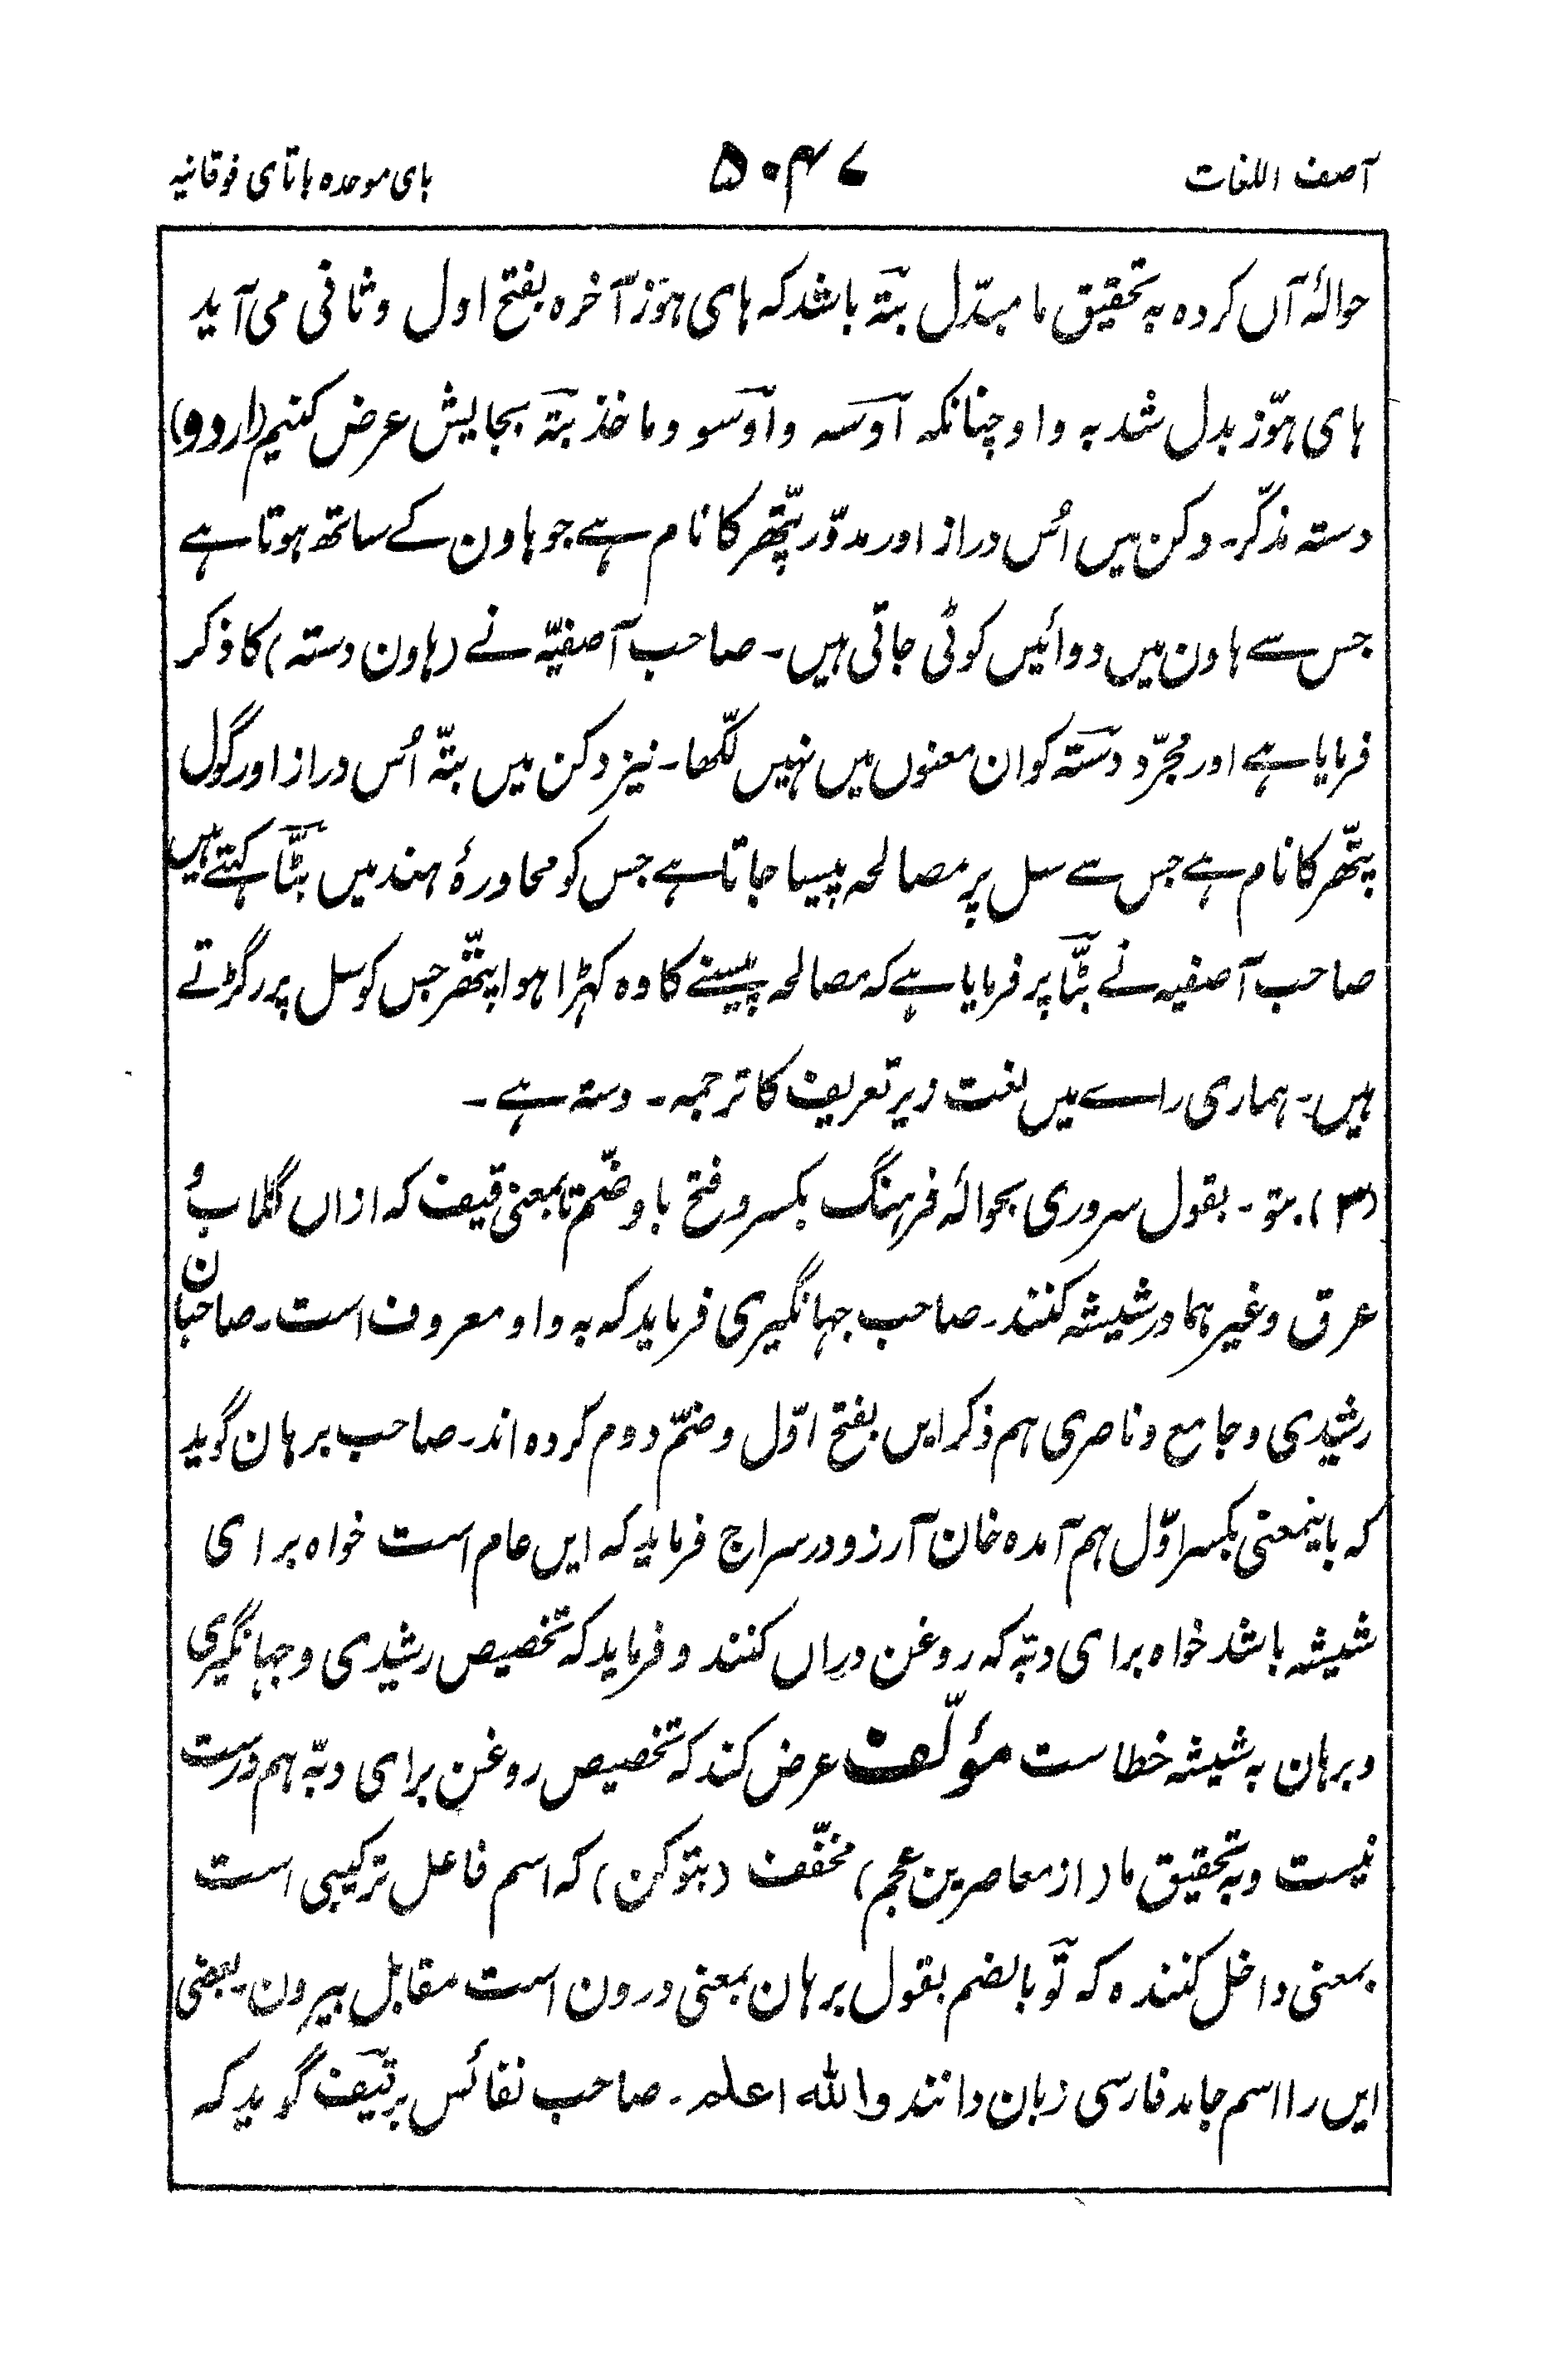 آصف اللغات ۵۰۴۷ بای موحده با تای فوقانیه
حوالۂ آں کرده به تحقیق ما مبدّل بتّہ باشد که های ہوّز آخره بفتح اول و ثانی می آید
های ہوّز بدل شد به واو چنانکه آوسہ و آوسو و ماخذ بتّہ بجایش عرض کنیم (اردو)
دستہ مذکّر۔ دکن میں اُس دراز اور مدوّر پتّھر کا نام ہے جو ہاون کے ساتھ ہوتا ہے
جس سے ہاون میں دوائیں کوٹی جاتی ہیں۔ صاحب آصفیّہ نے (ہاون دستہ) کا ذکر
فرمایا ہے اور مجرّد دستہ کو ان معنوں میں نہیں لکّھا۔ نیز دکن میں بتّہ اُس دراز اور گول
پتّھر کا نام ہے جس سے سل پر مصالحہ پیسا جاتا ہے جس کو محاورۂ ہند میں بٹّا کہتے ہیں
صاحب آصفیہ نے بٹّا پر فرمایا ہے کہ مصالحہ پیسنے کا وہ کہڑا ہوا پتّھر جس کو سل پر رگڑتے
ہیں۔ ہماری راے میں لغت زیر تعریف کا ترجمہ۔ دستہ ہے۔
(۳) بتو۔ بقول سروری بحوالۂ فرہنگ بکسر و فتح با و ضمّ تا بمعنی قیف که ازاں گلاب و
عرق و غیر ہما در شیشه کنند۔ صاحب جہانگیری فرماید که به واو معروف است۔ صاحبان
رشیدی و جامع و ناصری ہم ذکر ایں بفتح اوّل و ضمّ دوم کرده اند۔ صاحب برہان گوید
که باینمعنی بکسر اوّل ہم آمده خان آرزو در سراج فرماید که ایں عام است خواه برای
شیشه باشد خواه برای دبّه که روغن دراں کنند و فرماید که تخصیص رشیدی و جہانگیری
و برہان به شیشه خطاست مؤلّف عرض کند که تخصیص روغن برای دبّه ہم درست
نیست و به تحقیق ما (از معاصرین عجم) مخفّف (بتوکن) که اسم فاعل ترکیبی است
بمعنی داخل کننده که تو بالضم بقول برہان بمعنی درون است مقابل بیرون۔ بعضی
ایں را اسم جامد فارسی زبان دانند واللہ اعلم۔ صاحب نفائس بر قیف گوید که